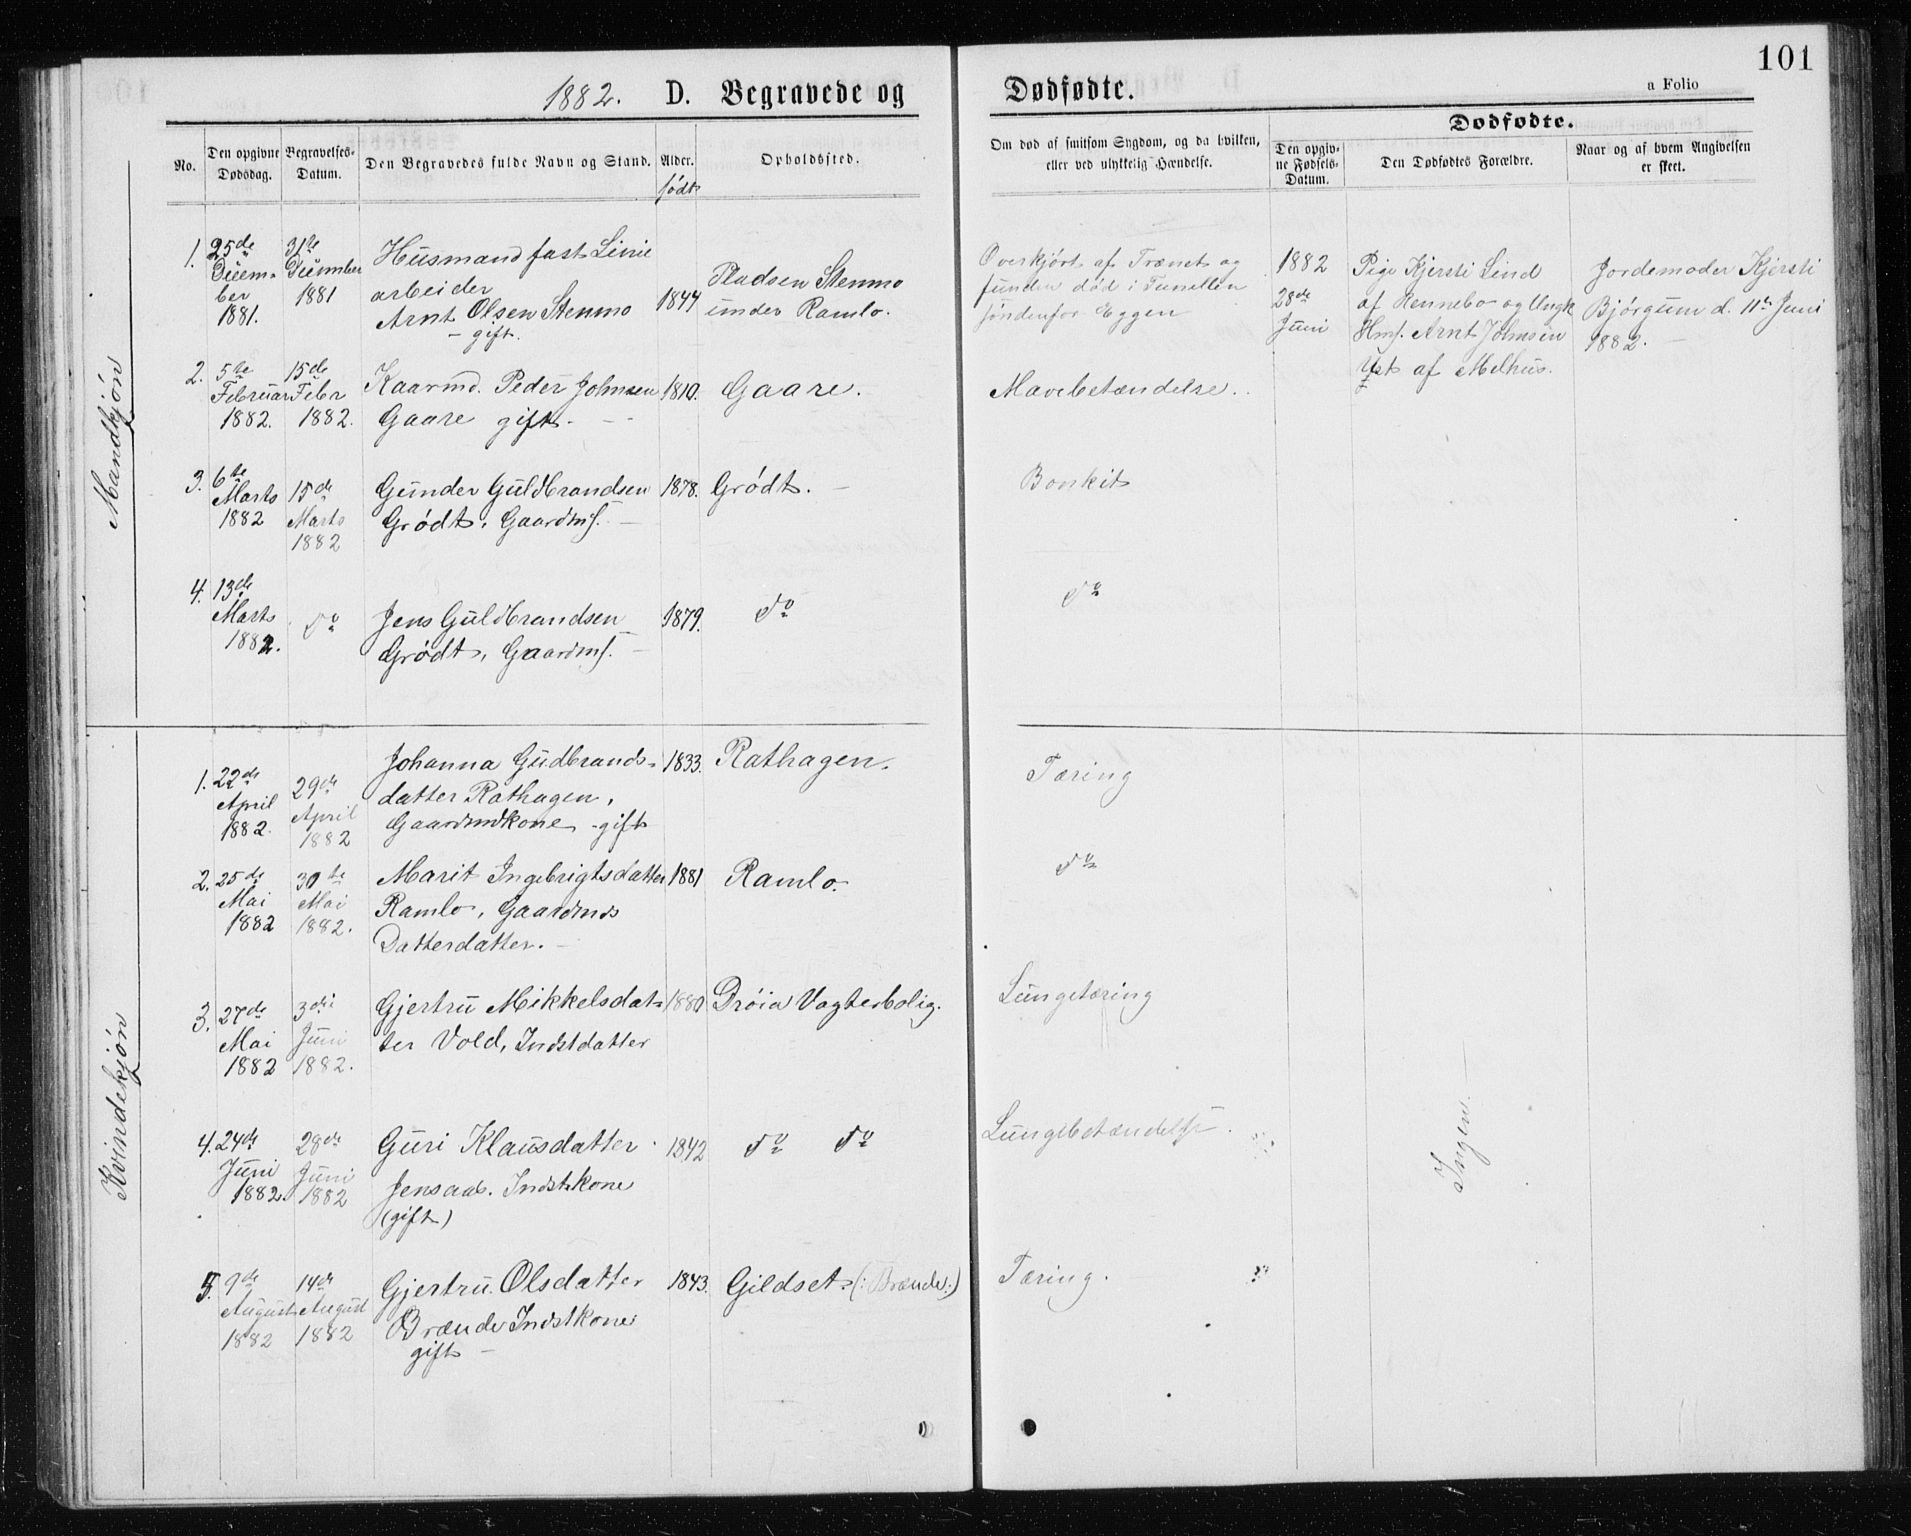 101
1882. D. Begravede og Dødfødte.
a Folio
No.
Den opgivne Dødsdag.
Begravelses-Datum.
Den Begravedes fulde Navn og Stand.
Alder.
født
Opholdssted.
Om død af smitsom Sygdom, og da hvilken,
eller ved ulykkelig Hændelse.
Dødfødte.
Den opgiv-
ne Fødsels-
Datum.
Den Dødfødtes Forældre.
Naar og af hvem Angivelsen
er skeet.
Mandkjøn
1. 25de Decem-
ber
1881.
31te
December
1881
Husmand fast Linie
arbeider
Arnt Olsen Stenmo
- gift.
1844
Pladsen Stenmo
under Ramlo.
Overkjørt af Trænet og
funden død i Tunellen
søndenfor Eggen
1882
28de
Juni
Pige Kjersti Lind
af Rennebo og Ungk
Hms. Arnt Johnsen
Øst af Melhus.
Jordemoder Kjersti
Bjørgum d. 11te Juni
1882. -
2. 5te
Februar
1882.
15de
Febr
1882.
Kaarmd. Peder Johnsen
Gaare gift. -
1810.
Gaare.
Mavebetændelse.
3. 6te
Marts
1882
15de
Marts
1882
Gunder Guldbrandsen
Grødt, Gaardms. -
1878.
Grødt. -
Bronkit
4. 13de
Marts
1882.
do
Jens Guldbrandsen
Grødt, Gaardms. -
1879.
do
do
Kvindekjøn
1. 22de
April
1882.
29de
April
1882
Johanna Gudbrands-
datter Rathagen,
Gaardmdkone - gift
1833.
Rathagen.
Tæring
2. 25de
Mai
1882
30te
Mai
1882.
Marit Ingebrigtsdatter
Ramlo, Gaardmds
Datterdatter. -
1881
Ramlo.
do
3. 27de
Mai
1882
3die
Juni
1882.
Gjertru Mikkelsdat-
ter Vold, Indstdatter
1880
Drøia Vogterbolig.
Lungetæring
4. 24de
Juni
1882.
28de
Juni
1882
Guri Klausdatter
Jensaas. Indstkone
(gift)
1842
do do
Lungebetændelse.
Ingen.
5. 9de
August
1882
14de
August
1882
Gjertru Olsdatter
Brænde Indstkone
gift -
1843.
Gildset. (: Brænde :)
Tæring.